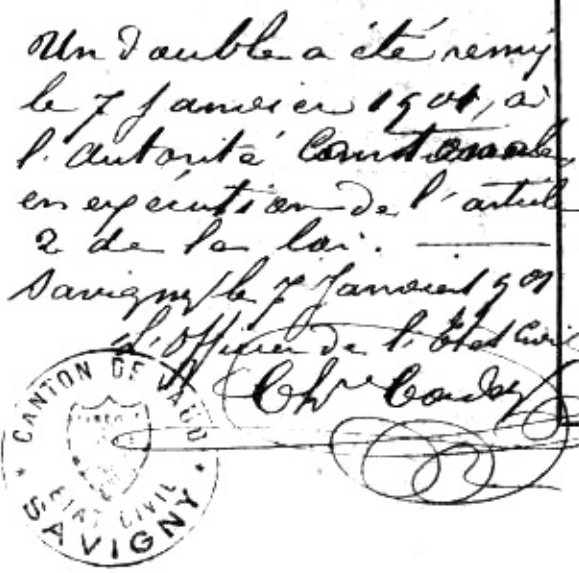 Un Double a été remis
le 7 Janvier 1901, à
l'autorité Cantonale,
en exécution de l'article
2 de la loi. —
Savigny le 7 Janvier 1901
L'Officier de l'État Civil
Ch^s
CANTON DE VAUD
LIBERTÉ
ÉTAT CIVIL
* SAVIGNY *